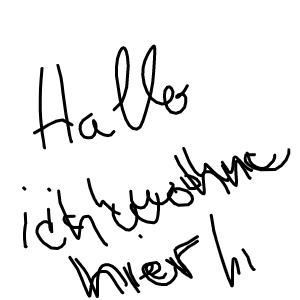 Hallo
ich wohne
hier hi